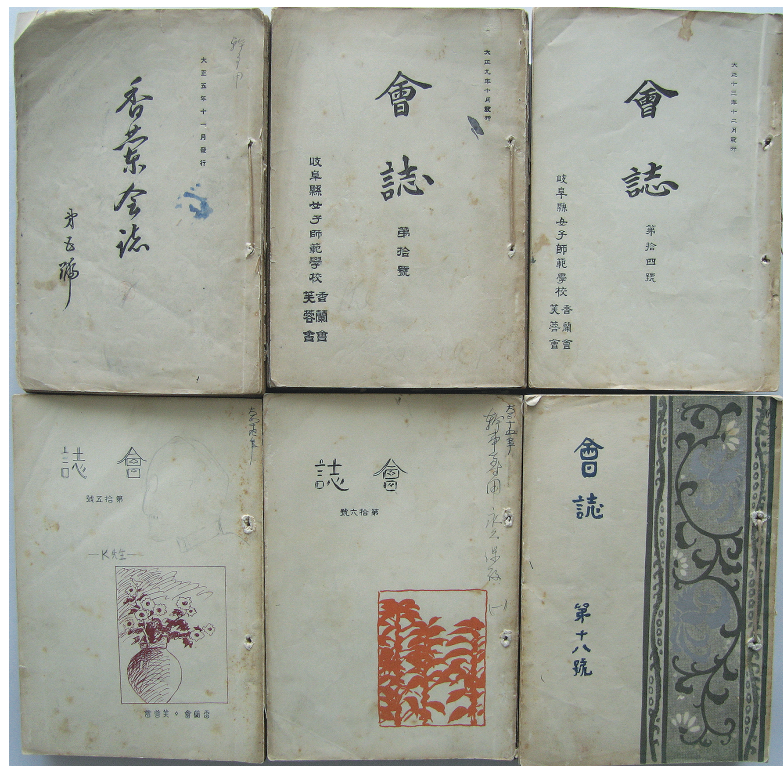 大正五年十一月發行
香蘭会誌
第五號
大正九年十月發行
會誌
第拾號
岐阜縣女子師範學校
香蘭會
芙蓉會
大正十三年十二月發行
會誌
第拾四號
岐阜縣女子師範學校
香蘭會
芙蓉會
會誌
第拾五號
K先生
香蘭會・芙蓉會
會誌
第拾六號
會誌
第十八號